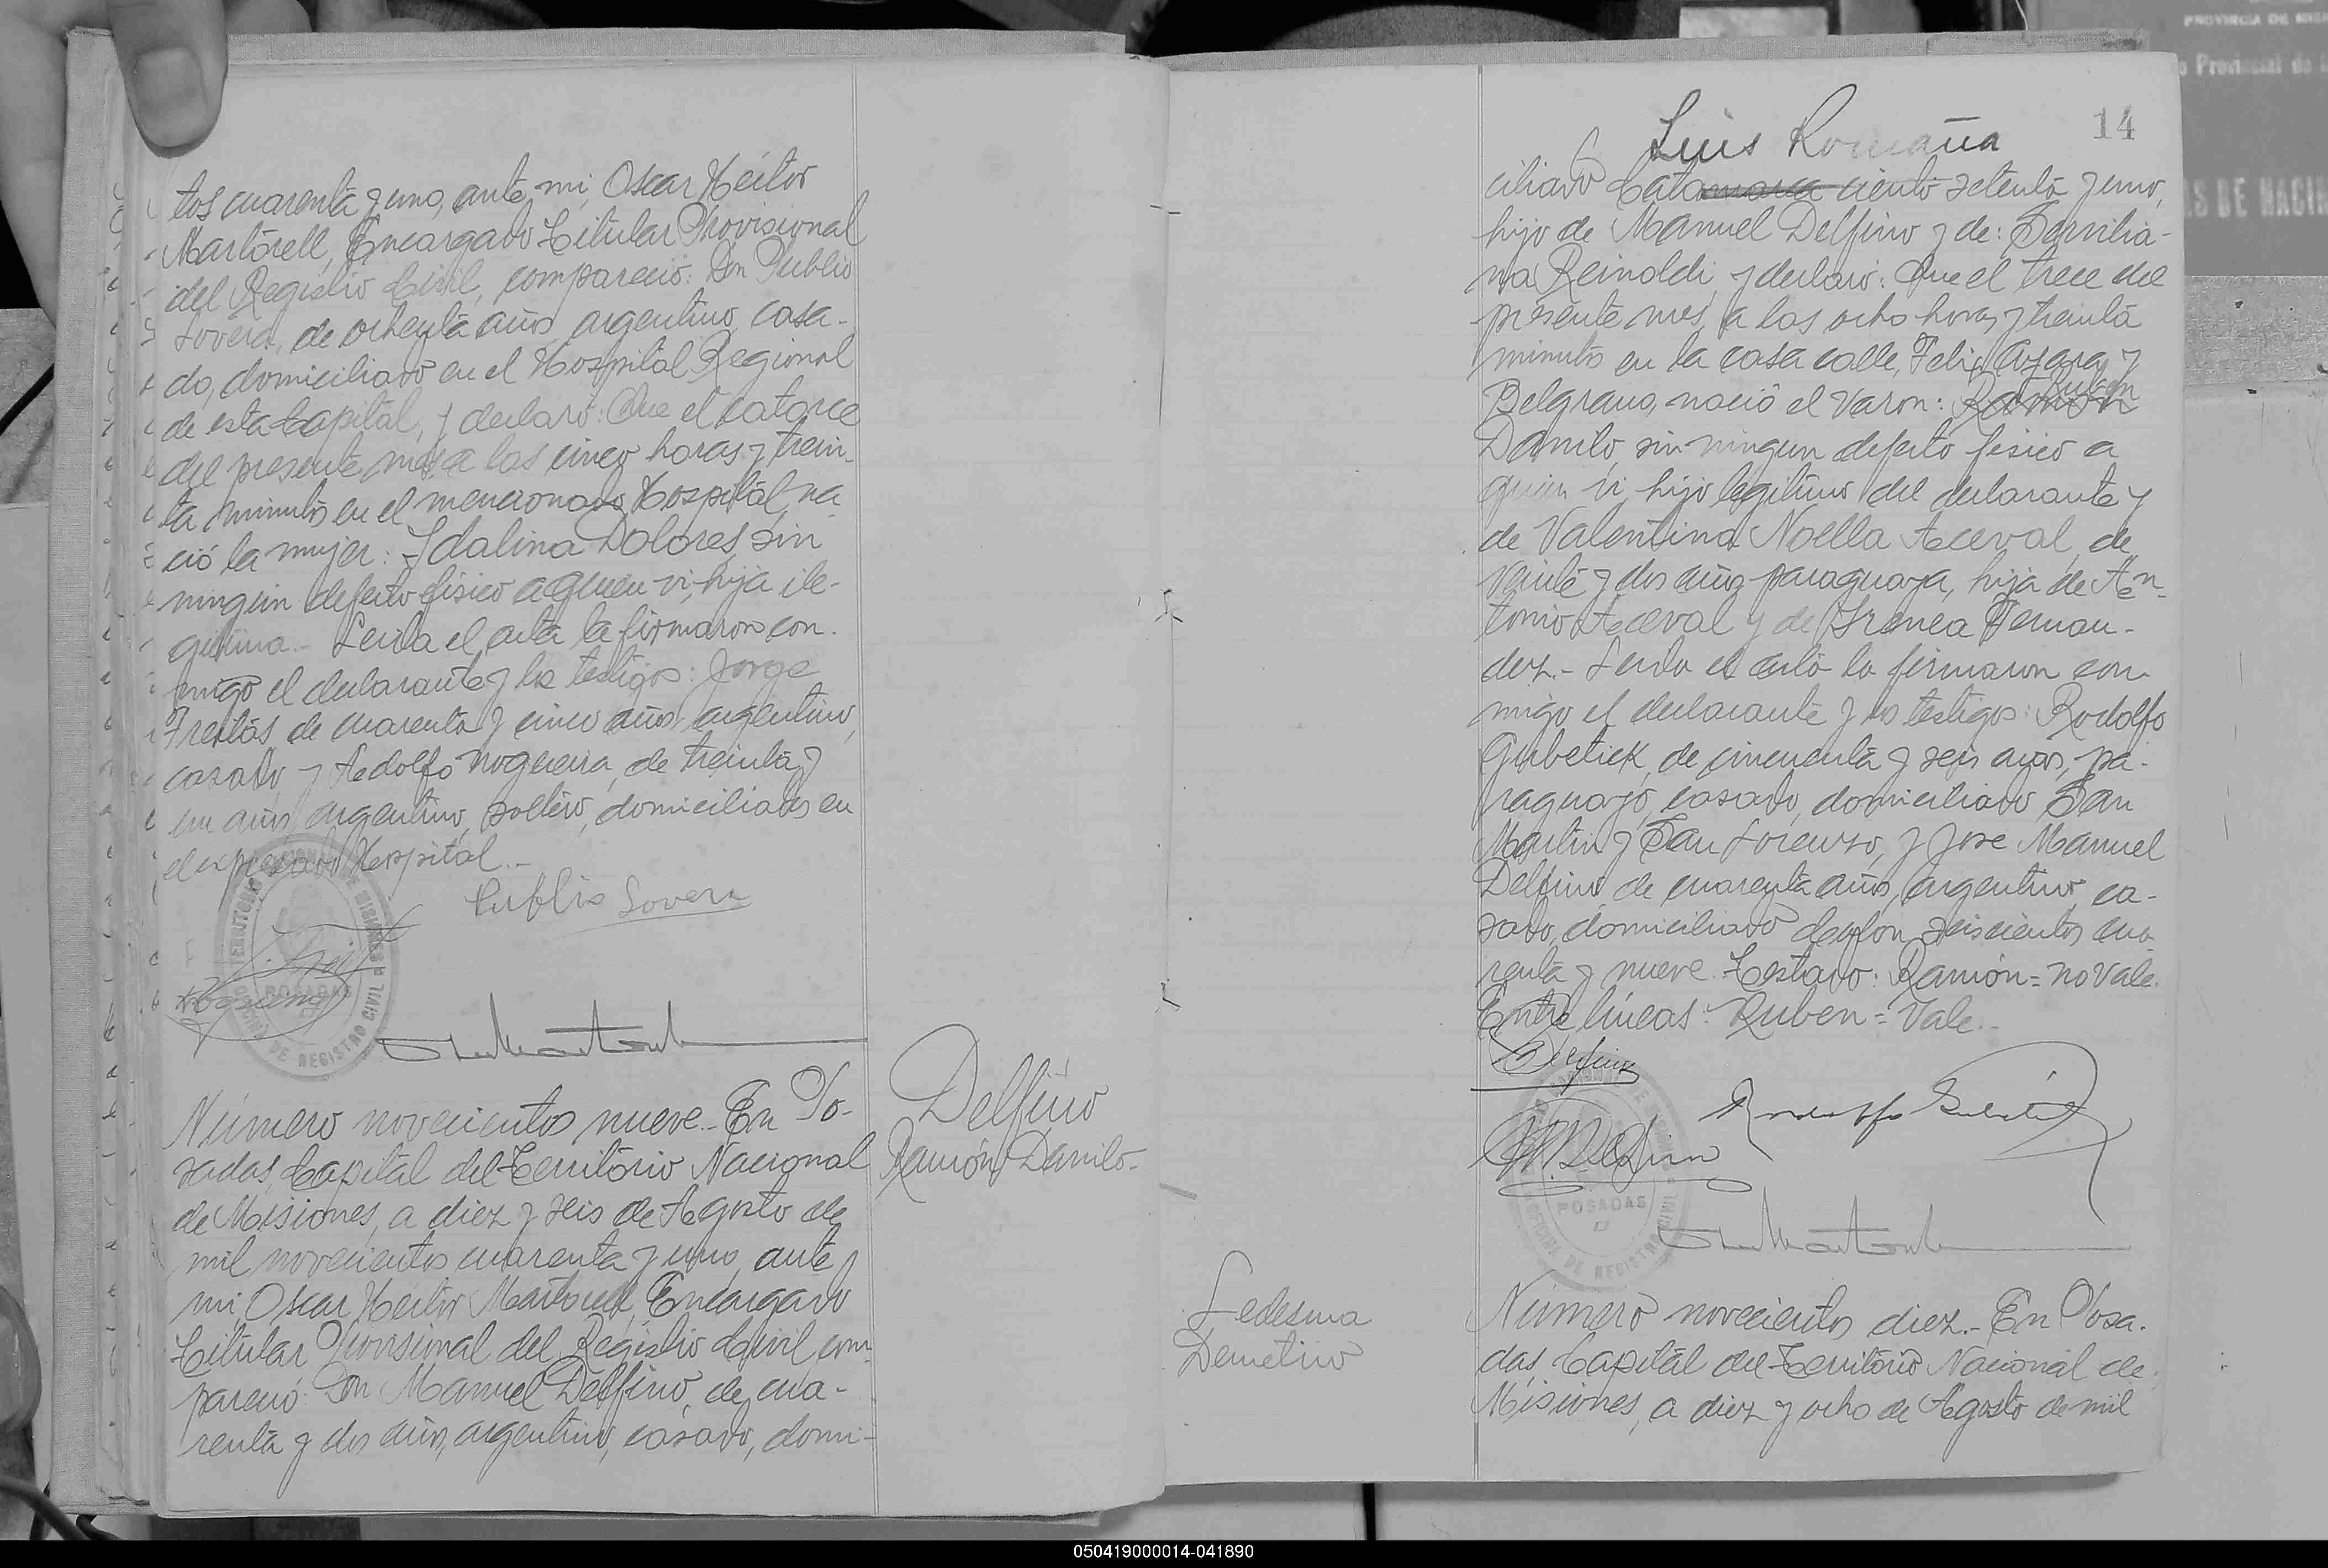 tos cuarenta y uno, ante mi, Oscar Héctor
Martorell, Encargado Titular Provisional
del Registro Civil, compareció: Don Publio
Lovera, de ochenta años, argentino, casa-
do, domiciliado en el Hospital Regional
de esta Capital, y declaró: Que el catorce
del presente mes a las cinco horas y trein-
ta minutos en el mencionado Hospital, na-
ció la mujer: Idalina Dolores, sin
ningun defecto fisico a quien vi, hija ile-
gitima.- Leida el acta la firmaron con-
migo el declarante y los testigos: Jorge
Freitas de cuarenta y cinco años, argentino,
casado y Adolfo Nogueira, de treinta y
un años, argentino, soltero, domiciliados en
el expresado Hospital.-
Publio Lovera
POSADAS
Número novecientos nueve.- En Po-
sadas, Capital del Territorio Nacional
de Misiones, a diez y seis de Agosto de
mil novecientos cuarenta y uno, ante
mi, Oscar Héctor Martorell, Encargado
Titular Provisional del Registro Civil com-
pareció: Don Manuel Delfino, de cua-
renta y dos años, argentino, casado, domi-
Delfino
Ramón Danilo-
14
Luis Romaña
ciliado Catamarca ciento setenta y uno,
hijo de Manuel Delfino y de: Semilia-
na Reinoldi, y declaró: Que el trece del
presente mes, a las ocho horas y treinta
minutos en la casa calle, Felix Azara y
Ruben
Belgrano, nació el varon: Ramón
Danilo, sin ningun defecto fisico a
quien vi, hijo legitimo del declarante y
de Valentina Noella Aceval, de
veinte y dos años, paraguaya, hija de An-
tonio Aceval y de Irenea Fernan-
dez.- Leida el acta la firmaron con-
migo el declarante y los testigos: Rodolfo
Gubetick, de cincuenta y seis años, pa-
raguayo, casado, domiciliado San
Martin y San Lorenzo, y Jose Manuel
Delfino, de cuarenta años, argentino, ca-
sado, domiciliado Ayolon seiscientos cua-
renta y nueve. Testado: Ramón = no vale.
Entre líneas: Ruben = Vale.-
Delfino
POSADAS
Ledesma
Demetrio
Número novecientos diez.- En Posa-
das, Capital del Territorio Nacional de
Misiones, a diez y ocho de Agosto de mil
050419000014-041890